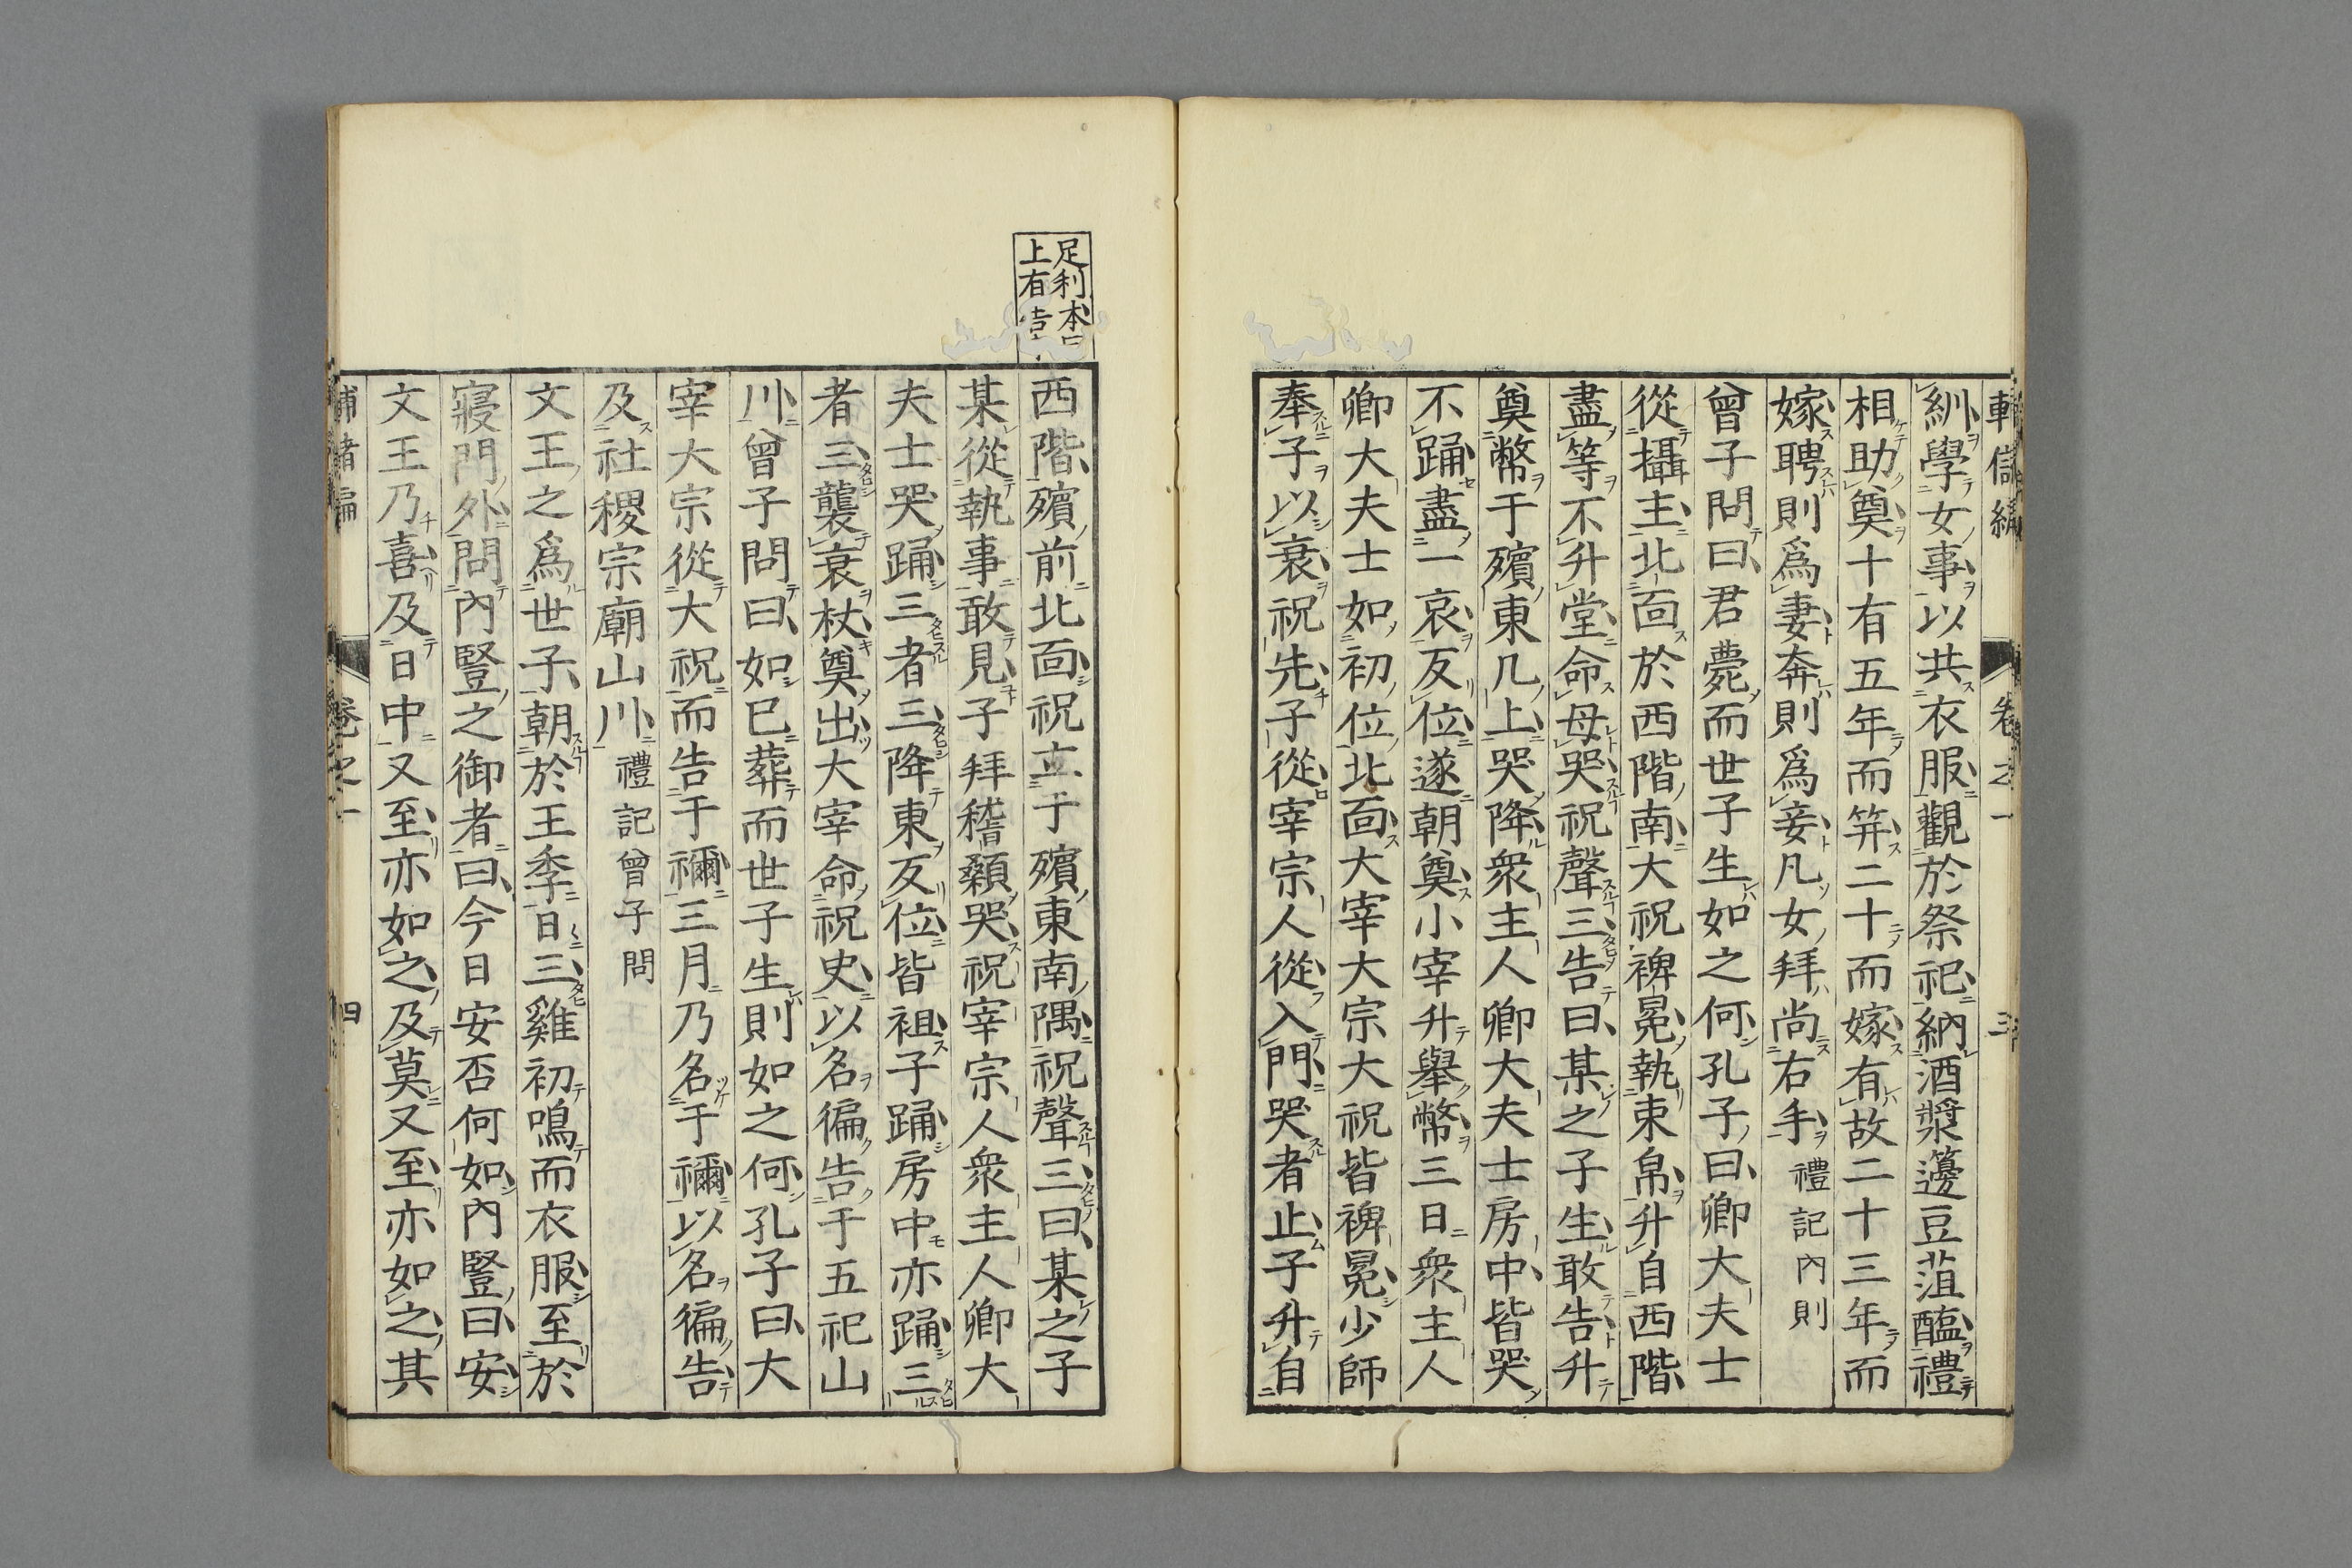 輔儲編 卷之一 三
紃學女事以共衣服觀於祭祀納酒漿籩豆菹醢禮
相助奠十有五年而筓二十而嫁有故二十三年而
嫁聘則爲妻奔則爲妾凡女拜尚右手 禮記內則
曾子問曰君薨而世子生如之何孔子曰卿大夫士
從攝主北面於西階南大祝裨冕執束帛升自西階
盡等不升堂命母哭祝聲三告曰某之子生敢告升
奠幣于殯東几上哭降衆主人卿大夫士房中皆哭
不踊盡一哀反位遂朝奠小宰升舉幣三日衆主人
卿大夫士如初位北面大宰大宗大祝皆裨冕少師
奉子以衰祝先子從宰宗人從入門哭者止子升自
足利本
上有告
西階殯前北面祝立于殯東南隅祝聲三曰某之子
某從執事敢見子拜稽顙哭祝宰宗人衆主人卿大
夫士哭踊三者三降東反位皆袒子踊房中亦踊三
者三襲衰杖奠出大宰命祝史以名徧告于五祀山
川曾子問曰如已葬而世子生則如之何孔子曰大
宰大宗從大祝而告于禰三月乃名于禰以名徧告
及社稷宗廟山川 禮記曾子問
文王之爲世子朝於王季日三雞初鳴而衣服至於
寢門外問內豎之御者曰今日安否何如內豎曰安
文王乃喜及日中又至亦如之及莫又至亦如之其
輔儲編 卷之一 四